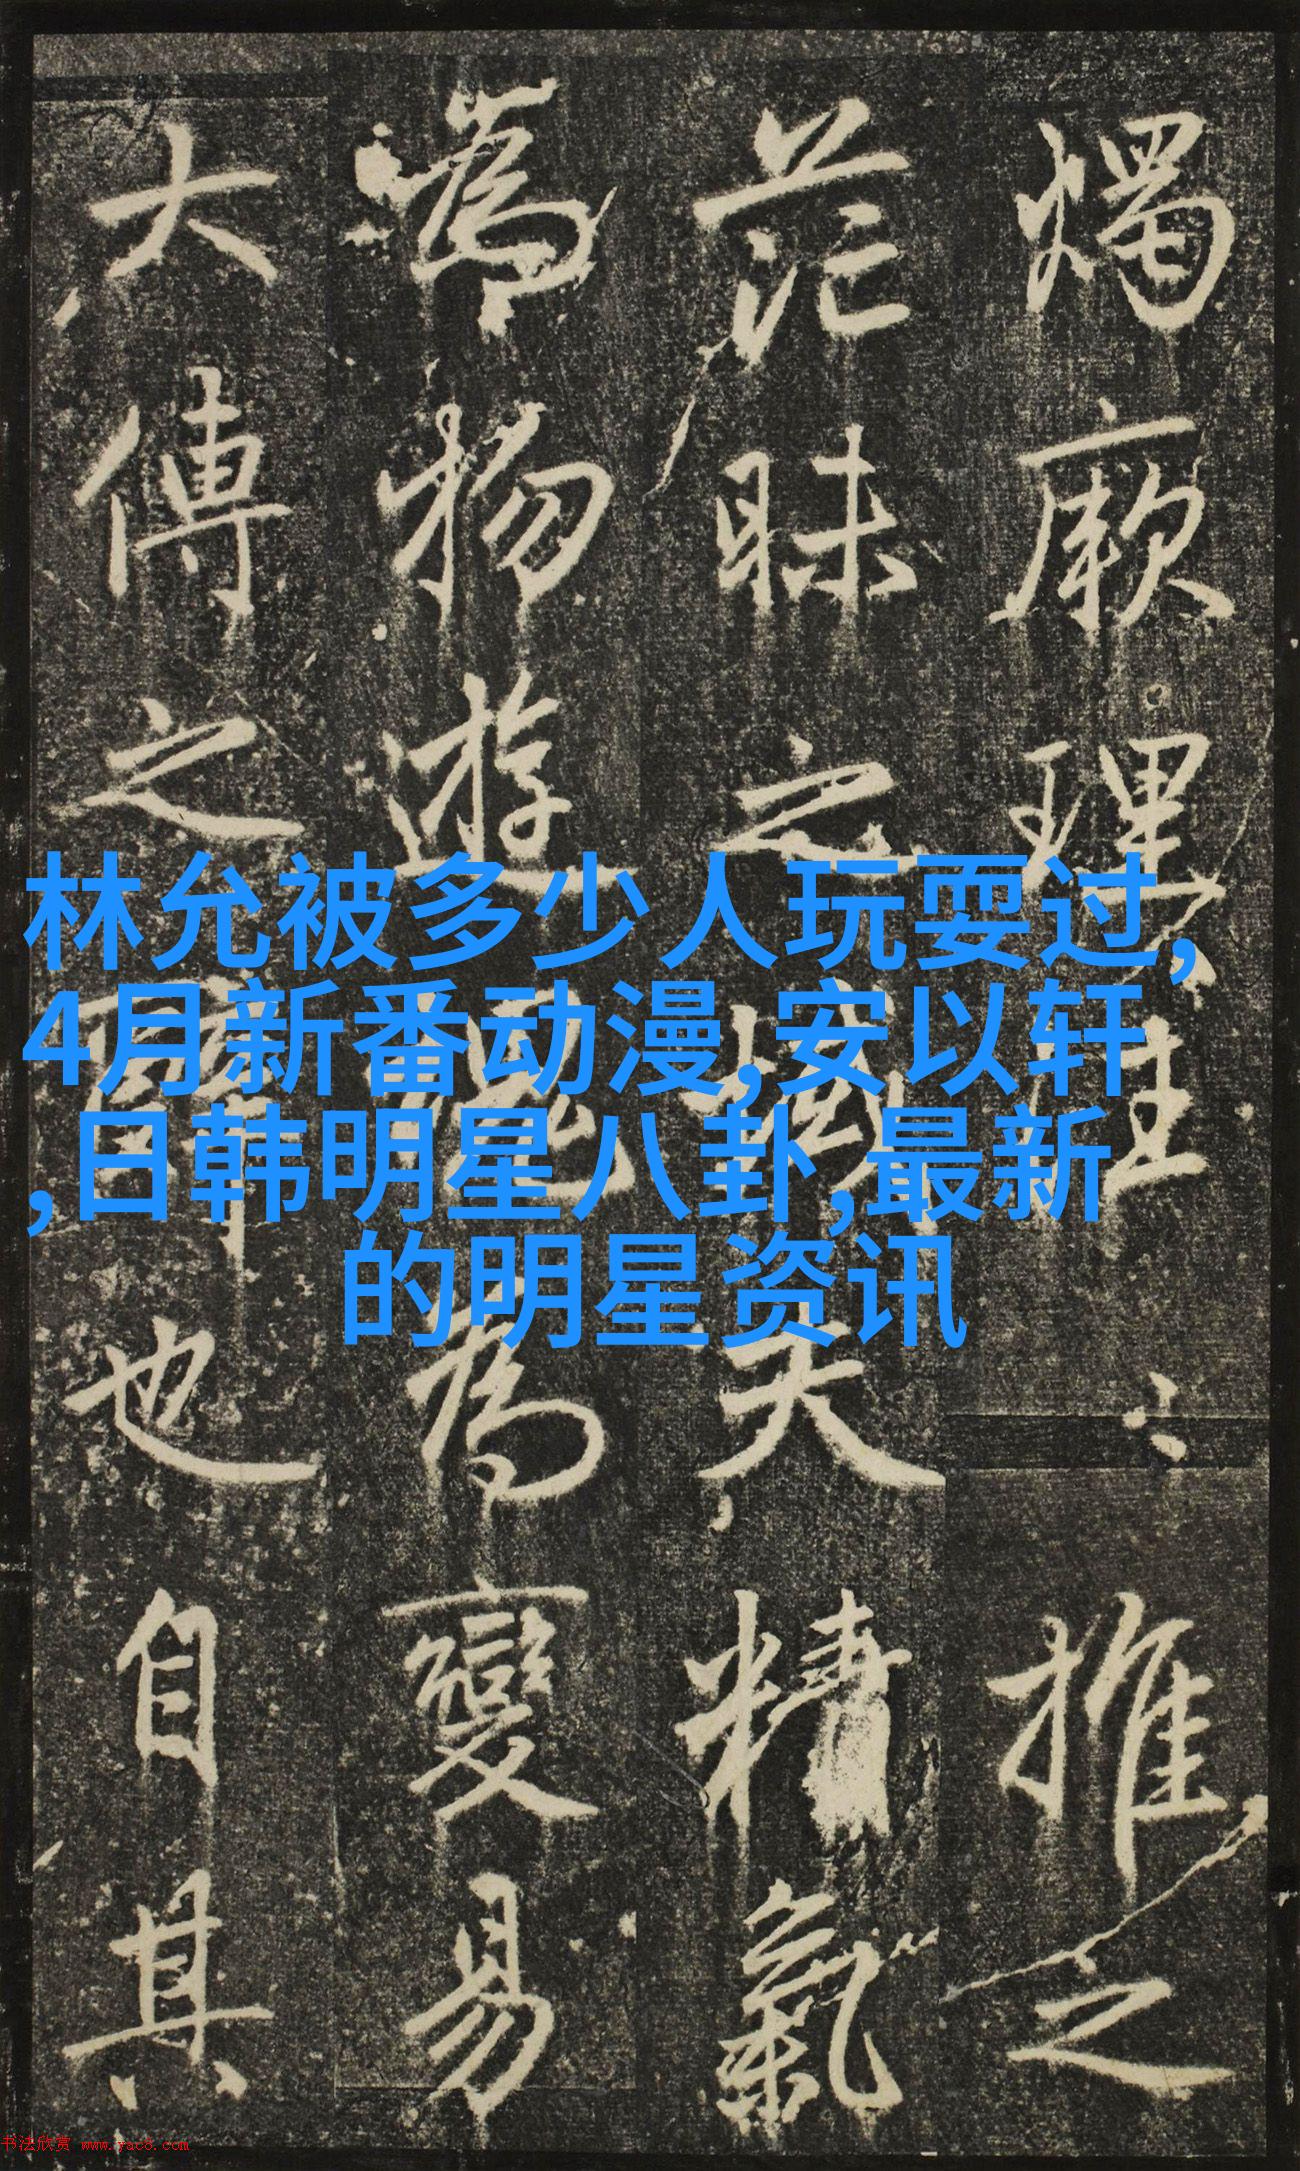 燭厥理推之
茫昧之域夫精氣
為物遊魂為變易
大傳之辭也自其
林允被多少人玩耍过,
4月新番动漫,安以轩
,日韩明星八卦,最新
的明星资讯
书法欣赏 www.yac8.com